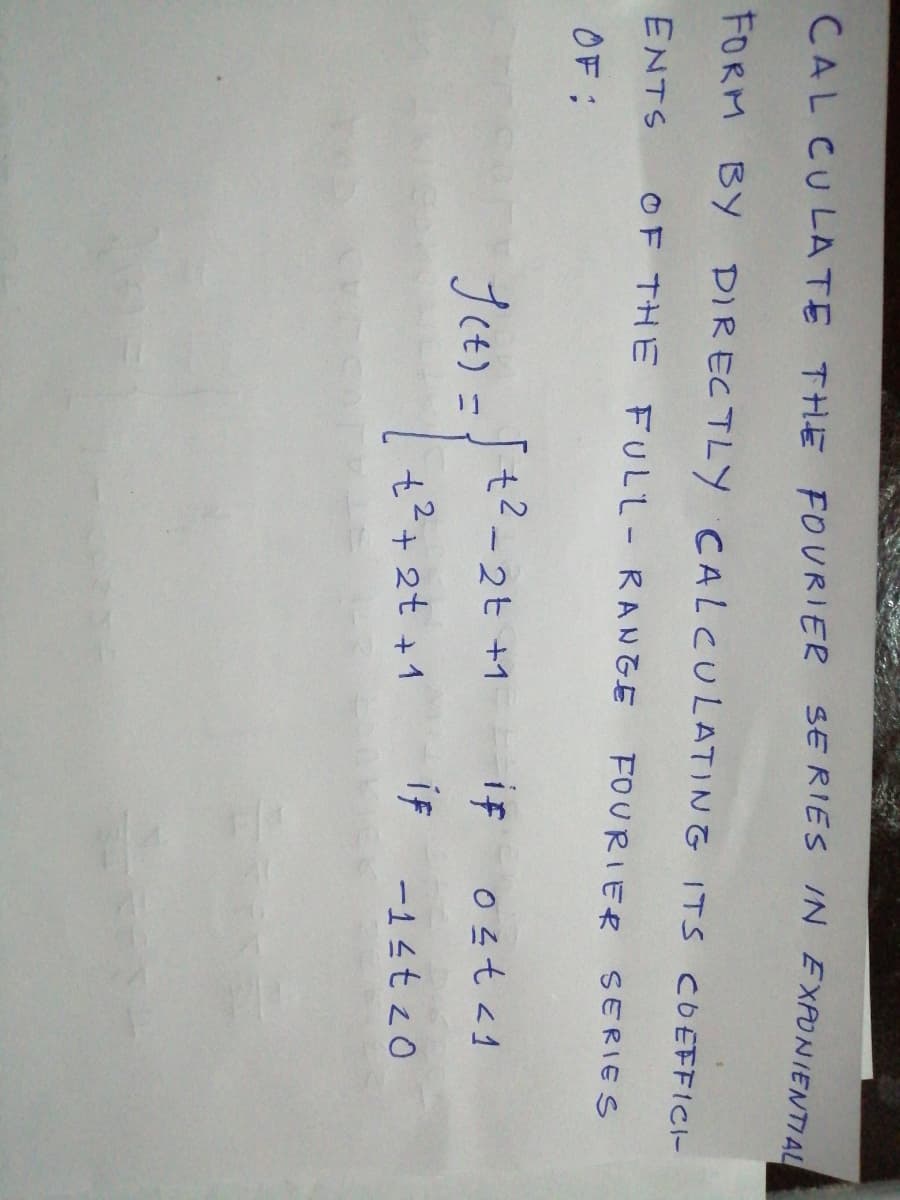 CALCULATE THE FOURIER SERIES IN EXPONIENTIAL
FORM BY DIRECTLY CALCULATING ITS COEFFICI-
ENTS OF THE FULL-RANGE FOURIER SERIES
OF:
f(t) = { t² - 2t + 1 if 0 ≤ t < 1
t² + 2t + 1 if -1 ≤ t < 0